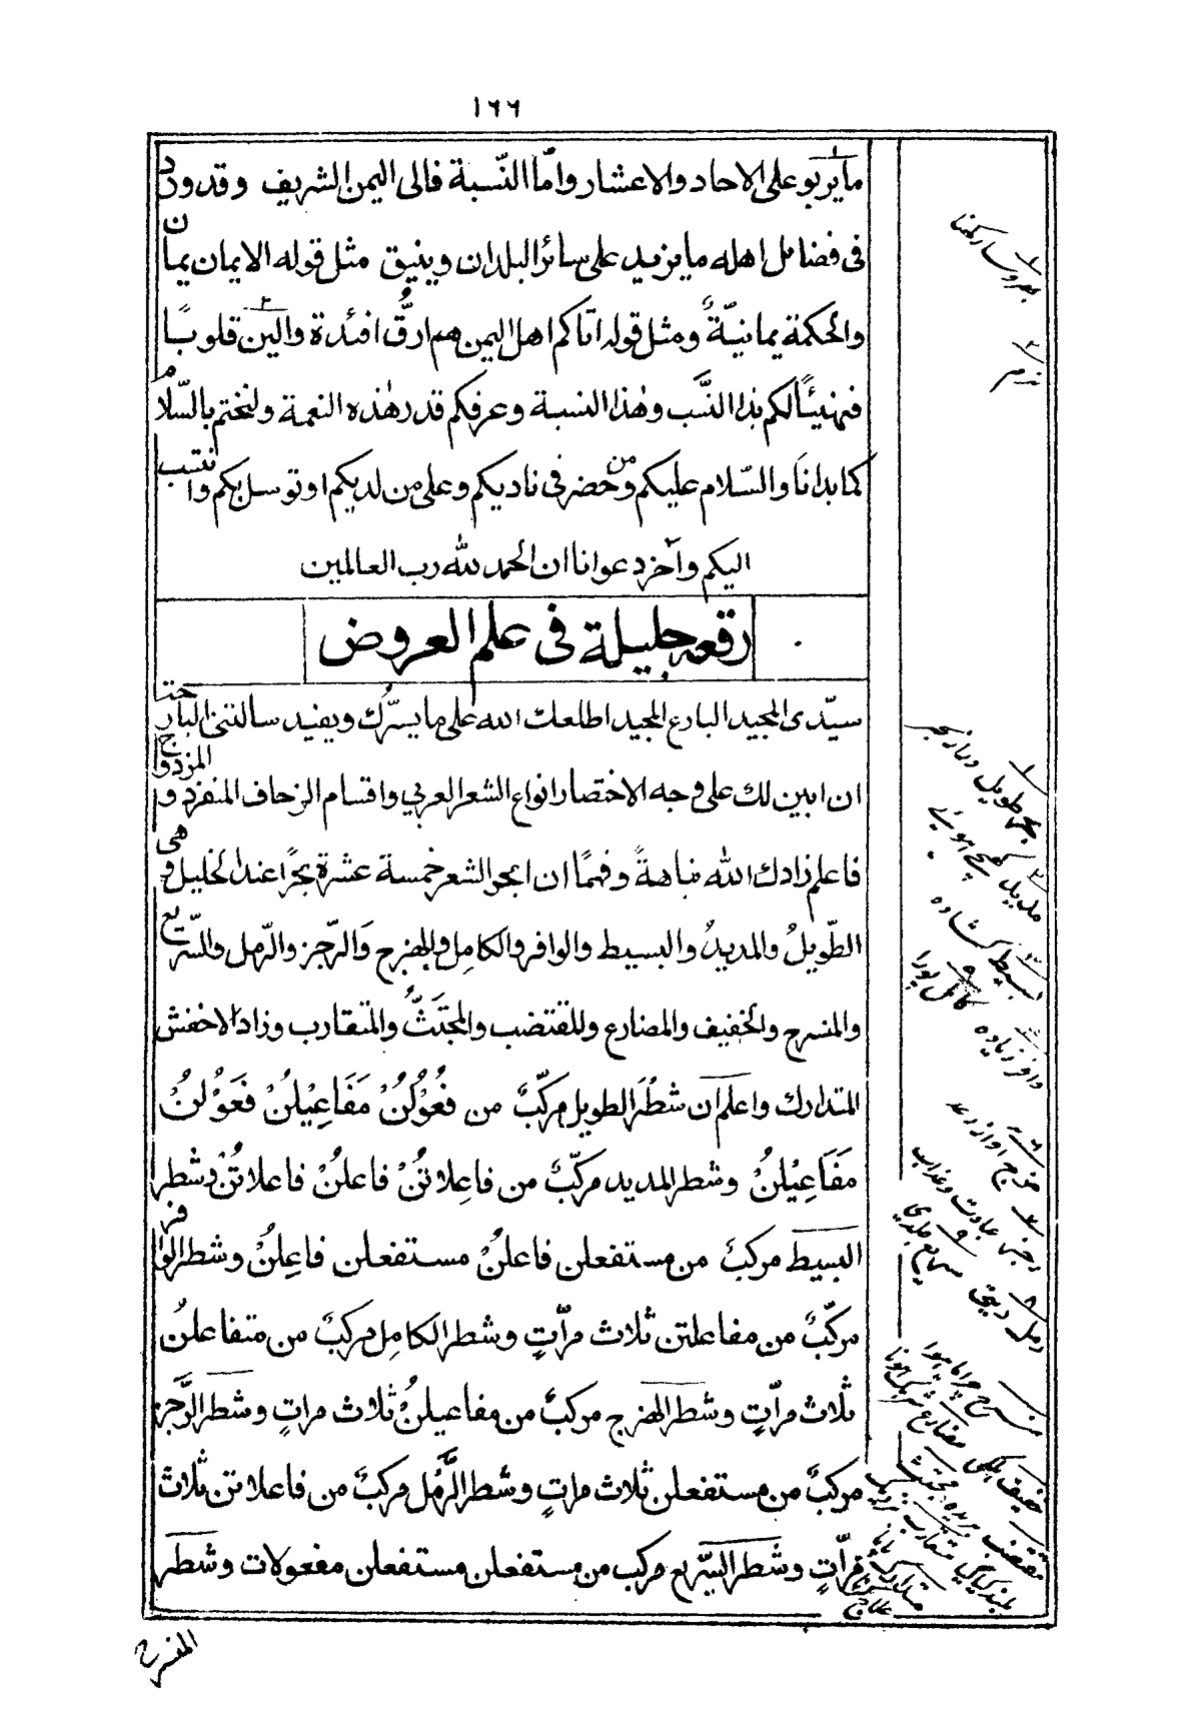 ١٦٦
ما يربو على الاحاد والاعشار وامّا النّسبة فالى اليمن الشريف وقد ورد
فى فضائل اهله ما يزيد على سائر البلدان وينيق مثل قوله الايمان يمان
والحكمة يمانيّةٌ ومثل قوله اتاكم اهل اليمن هم ارقُّ افئدة والين قلوبًا
فهنيئًا لكم بذا النَّسب وهٰذا النسبة وعرفكم قدر هٰذه النعمة ولنختم بالسّلام
كما بدانا والسّلام عليكم ومن حضر فى ناديكم وعلى من لديكم او توسل بكم وانتسب
اليكم وآخر دعوانا ان الحمد للّٰه رب العالمين
رقعه جليلة فى علم العروض
سيّدى المجيد البارع المجيد اطلعك اللّٰه على ما يسرُّك ويفيد سالتنى البارحتـ
ان ابين لك على وجه الاختصار انواع الشعر العربي واقسام الزحاف المنفرد والمزدوج
فاعلم زادك اللّٰه نباهةً وفهمًا ان ابحو الشعر خمسة عشرة بحرًا عند الخليل وهى
الطّويلُ والمديدُ والبسيط والوافر والكامل والهزج وَالرّجز والرّمل والسّريع
والمنسرح والخفيف والمضارع والمقتضب والمجتثّ والمتقارب وزاد الاخفش
المتدارك واعلم ان شطْرَ الطويل مركّبٌ من فُعُوْلُنْ مَفَاعِيْلُنْ فَعَوْلُنْ
مَفَاعِيْلُنْ وشطر المديد مركّبٌ من فاعِلاتُنْ فاعلنْ فاعلاتُنْ وشطر
البسيط مركبٌ من مستفعلن فاعلنْ مستفعلن فاعِلنْ وشطر الوافر
مركّبٌ من مفاعلتن ثلاث مرّاتٍ وشطر الكامِل مركبٌ من متفاعلنْ
ثلاث مرّاتٍ وشطر الهزج مركبٌ من مفاعيلنْ ثلاث مراتٍ وشطر الرَّجز
مركبٌ من مستفعلن ثلاث مراتٍ وشطر الرَّمل مركبٌ من فاعلاتن ثلاث
مرّاتٍ وشطر السّريع مركب من مستفعلن مستفعلن مفعولات وشطر
بحر طويل
مديل
بسيط كشاده
كامل پورا
وافر زياده
هزج آواز
رجز عادت وعذاب
سريع جلدى
رمل ريتى
خفيف ہلكى
المنسرح